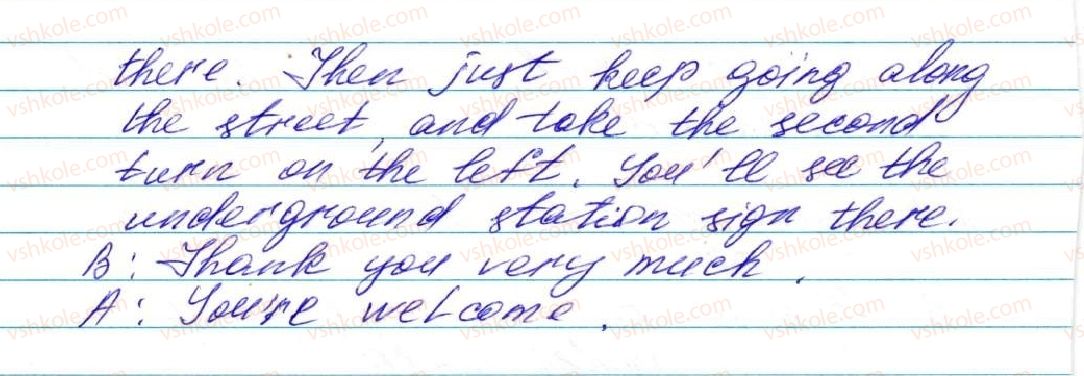 there. Then just keep going along
the street, and take the second
turn on the left. You'll see the
underground station sign there.
B: Thank you very much.
A: You're welcome.